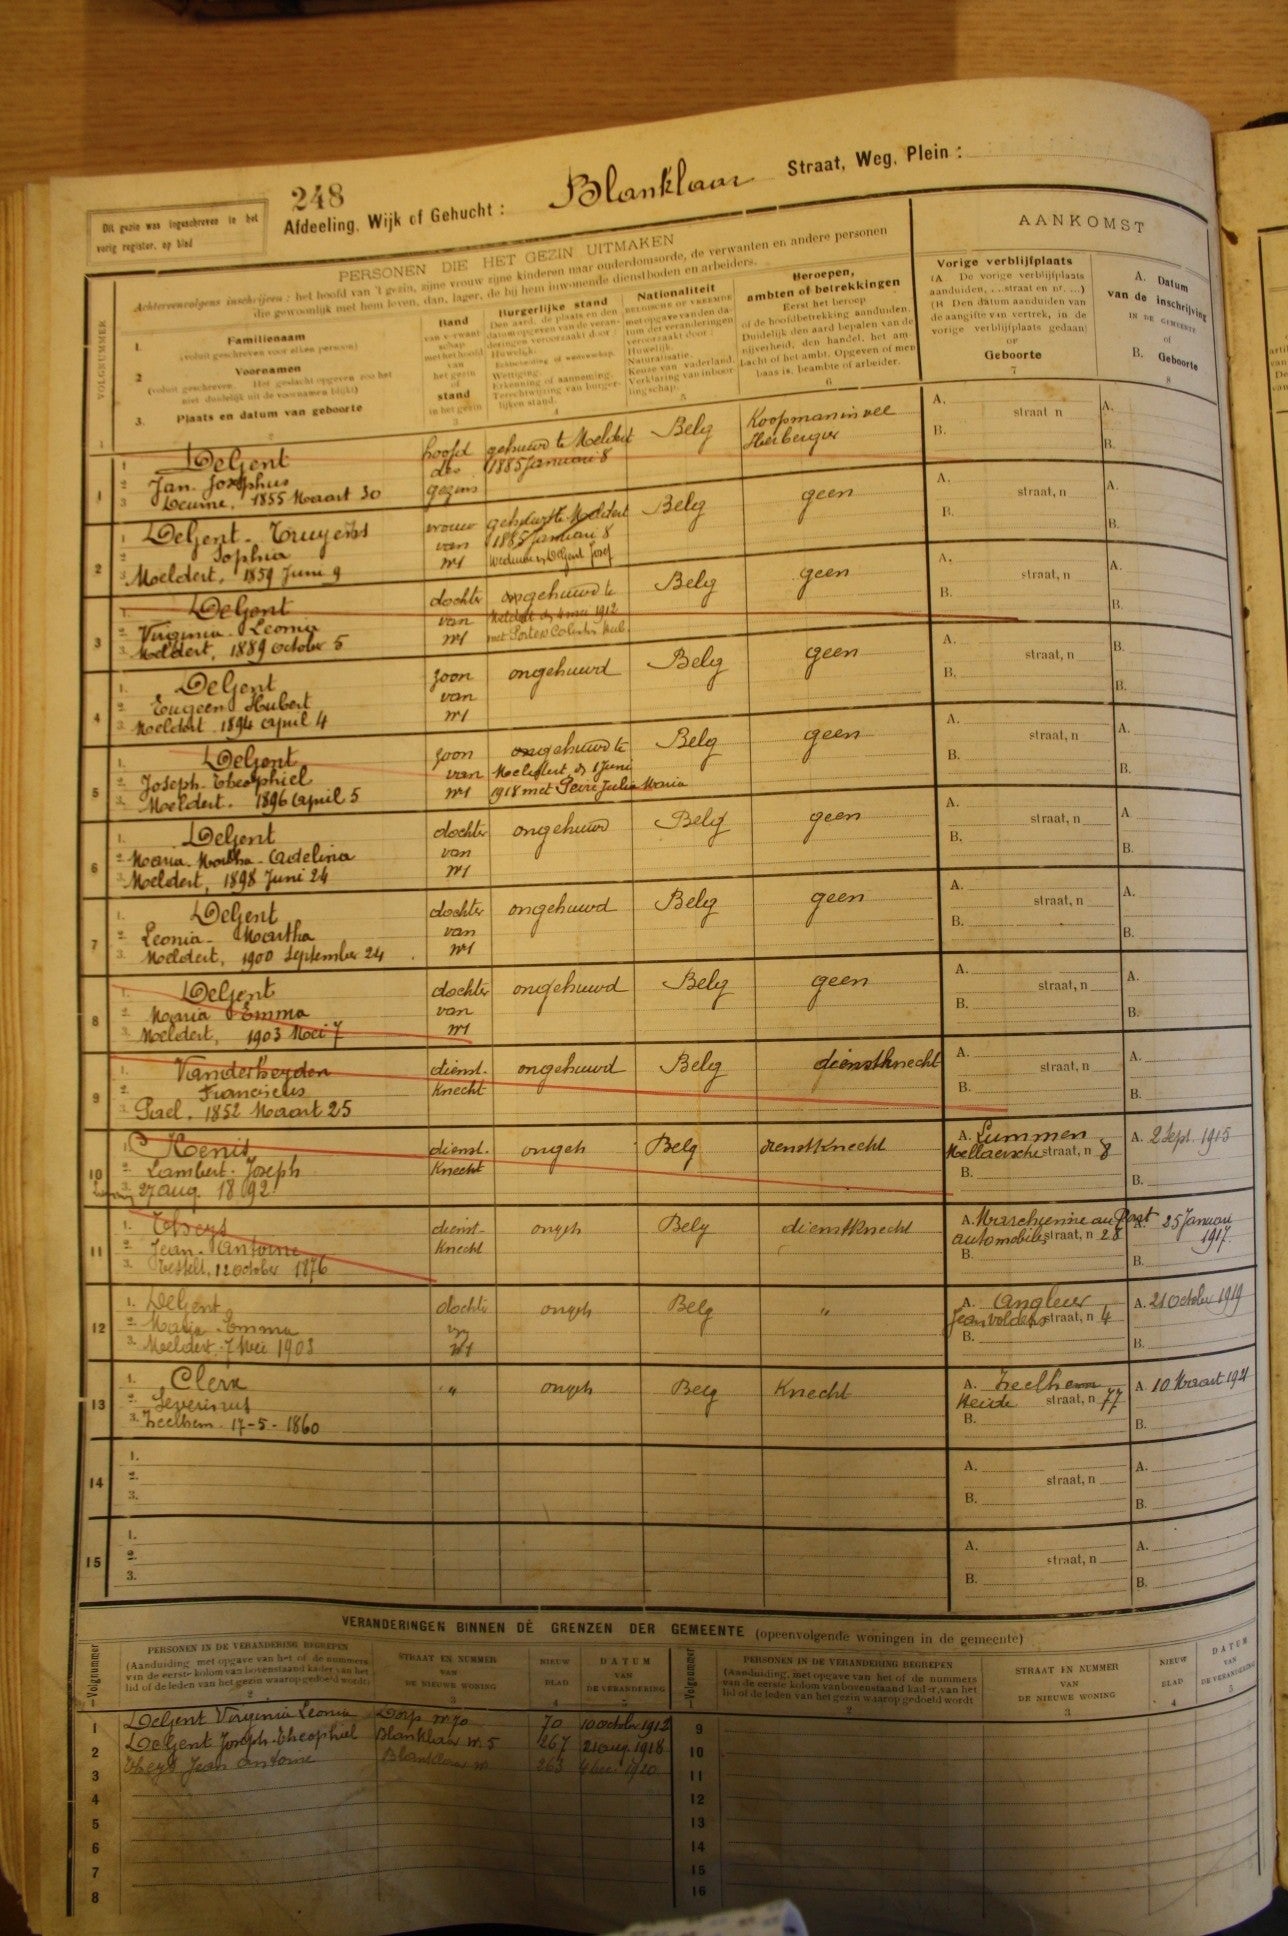 248
Dit gezin was ingeschreven in het
vorig register, op blad
Afdeeling, Wijk of Gehucht : Blanklaar Straat, Weg, Plein :
PERSONEN DIE HET GEZIN UITMAKEN
Achtereenvolgens inschrijven : het hoofd van 't gezin, zijne vrouw zijne kinderen naar ouderdomsorde, de verwanten en andere personen
die gewoonlijk met hem leven, dan, lager, de bij hem inwonende dienstboden en arbeiders.
AANKOMST
VOLGNUMMER
1. Familienaam
(voluit geschreven voor elken persoon)
2 Voornamen
(voluit geschreven. Het geslacht opgeven zoo het
niet duidelijk uit de voornamen blijkt)
3. Plaats en datum van geboorte
Band
van verwant
schap
met het hoofd
van
het gezin
of
stand
in het gezin
Burgerlijke stand
Den aard, de plaats en den
datum opgeven van de veran-
deringen veroorzaakt door :
Huwelijk.
Echtscheiding of weduwschap.
Wettiging.
Erkenning of aanneming.
Terechtwijzing van burger-
lijken stand.
Nationaliteit
BELGISCHE OF VREEMDE
met opgave van den da-
tum der veranderingen
veroorzaakt door :
Huwelijk.
Naturalisatie.
Keuze van vaderland.
Verklaring van inboor-
lingschap.
Beroepen,
ambten of betrekkingen
Eerst het beroep
of de hoofdbetrekking aanduiden.
Duidelijk den aard bepalen van de
nijverheid, den handel, het am
bacht of het ambt. Opgeven of men
baas is, beambte of arbeider.
Vorige verblijfplaats
(A De vorige verblijfplaats
aanduiden, ...straat en nr. ...)
(B Den datum aanduiden van
de aangifte van vertrek, in de
vorige verblijfplaats gedaan)
OF
Geboorte
A. Datum
van de inschrijving
IN DE GEMEENTE
of
B. Geboorte
1 2 3 4 5 6 7 8
1 1. Delgent hoofd gehuwd te Meldert Belg Koopman in vee A. straat n A.
2. Jan. Josephus des 1885 Januari 8 Herbergier B. B.
3. Deurne, 1855 Maart 30 gezins
2 1. Delgent-Truyens vrouw gehuwd te Meldert Belg geen A. straat, n A.
2. Sophia van 1885 Januari 8 B. B.
3. Meldert, 1859 Juni 9 nr1 Weduwe Delgent Josef
3 1. Delgent dochter ongehuwd te Belg geen A. straat, n A.
2. Virginia Leonia van Meldert 4 mei 1912 B. B.
3. Meldert, 1889 October 5 nr1 met
4 1. Delgent zoon ongehuwd Belg geen A. straat, n B.
2. Eugeen Hubert van B. B.
3. Meldert 1894 april 4 nr1
5 1. Delgent zoon ongehuwd te Belg geen A. straat, n A.
2. Joseph Theophiel van Meldert 1 Juni B. B.
3. Meldert. 1896 april 5 nr1 1918 met Julia Maria
6 1. Delgent dochter ongehuwd Belg geen A. straat, n A
2. Maria Martha Adelina van B. B.
3. Meldert, 1898 Juni 24 nr1
7 1. Delgent dochter ongehuwd Belg geen A. straat, n A.
2. Leonia Martha van B. B.
3. Meldert, 1900 September 24 nr1
8 1. Delgent dochter ongehuwd Belg geen A. straat, n A.
2. Maria Emma van B. B.
3. Meldert, 1903 Mei 7 nr1
9 1. Vanderheyden dienst- ongehuwd Belg dienstknecht A. straat, n A.
2. Franciscus knecht B. B.
3. Pael. 1852 Maart 25
10 1. Henis dienst- ongeh Belg dienstknecht A. Lummen A. 2 Sept. 1915
2. Lambert Joseph knecht straat, n 8
3. 27 aug. 1892 B. B.
11 1. Theys dienst- ongeh Belg dienstknecht A. Marchienne au Pont A. 25 Januari
2. Jean Antoine knecht automobiles straat, n 28 1917.
3. Testelt, 12 October 1876 B. B.
12 1. Delgent dochter ongeh Belg " A. Angleur A. 21 October 1919
2. Maria Emma van Jean Volders straat, n 4
3. Meldert 7 Mei 1903 nr1 B. B.
13 1. Clerx " ongeh Belg Knecht A. Zeelhem A. 10 Maart 1921
2. Severinus Heide straat, n 77
3. Zeelhem 17-5-1860 B. B.
14 1. A. straat, n A.
2. B. B.
3.
15 1. A. straat, n A.
2. B. B.
3.
VERANDERINGEN BINNEN DE GRENZEN DER GEMEENTE (opeenvolgende woningen in de gemeente)
Volgnummer
PERSONEN IN DE VERANDERING BEGREPEN
(Aanduiding met opgave van het of de nummers
van de eerste kolom van bovenstaand kader van het
lid of de leden van het gezin waarop gedoeld wordt)
STRAAT EN NUMMER
VAN
DE NIEUWE WONING
NIEUW
BLAD
DATUM
VAN
DE VERANDERING
1 2 3 4 5
Volgnummer
PERSONEN IN DE VERANDERING BEGREPEN
(Aanduiding, met opgave van het of de nummers
van de eerste kolom van bovenstaand kader, van het
lid of de leden van het gezin waarop gedoeld wordt
STRAAT EN NUMMER
VAN
DE NIEUWE WONING
NIEUW
BLAD
DATUM
VAN
DE VERANDERING
1 2 3 4 5
1 Delgent Virginia Leonia Dorp nr 70 70 10 October 1912 9
2 Delgent Joseph-Theophiel Blanklaar nr. 5 267 21 aug. 1918 10
3 Theys Jean Antoine Blanklaar nr 263 1920 11
4 12
5 13
6 14
7 15
8 16